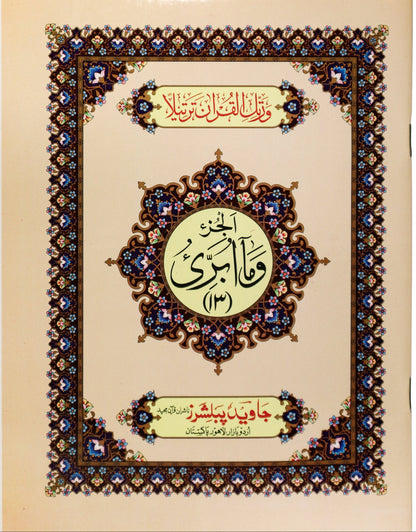 ورتل القرآن ترتیلا
الجزء
وَمَآ اُبَرِّئُ
(١٣)
جاوید پبلشرز ناشران قرآن مجید
اردو بازار لاہور پاکستان